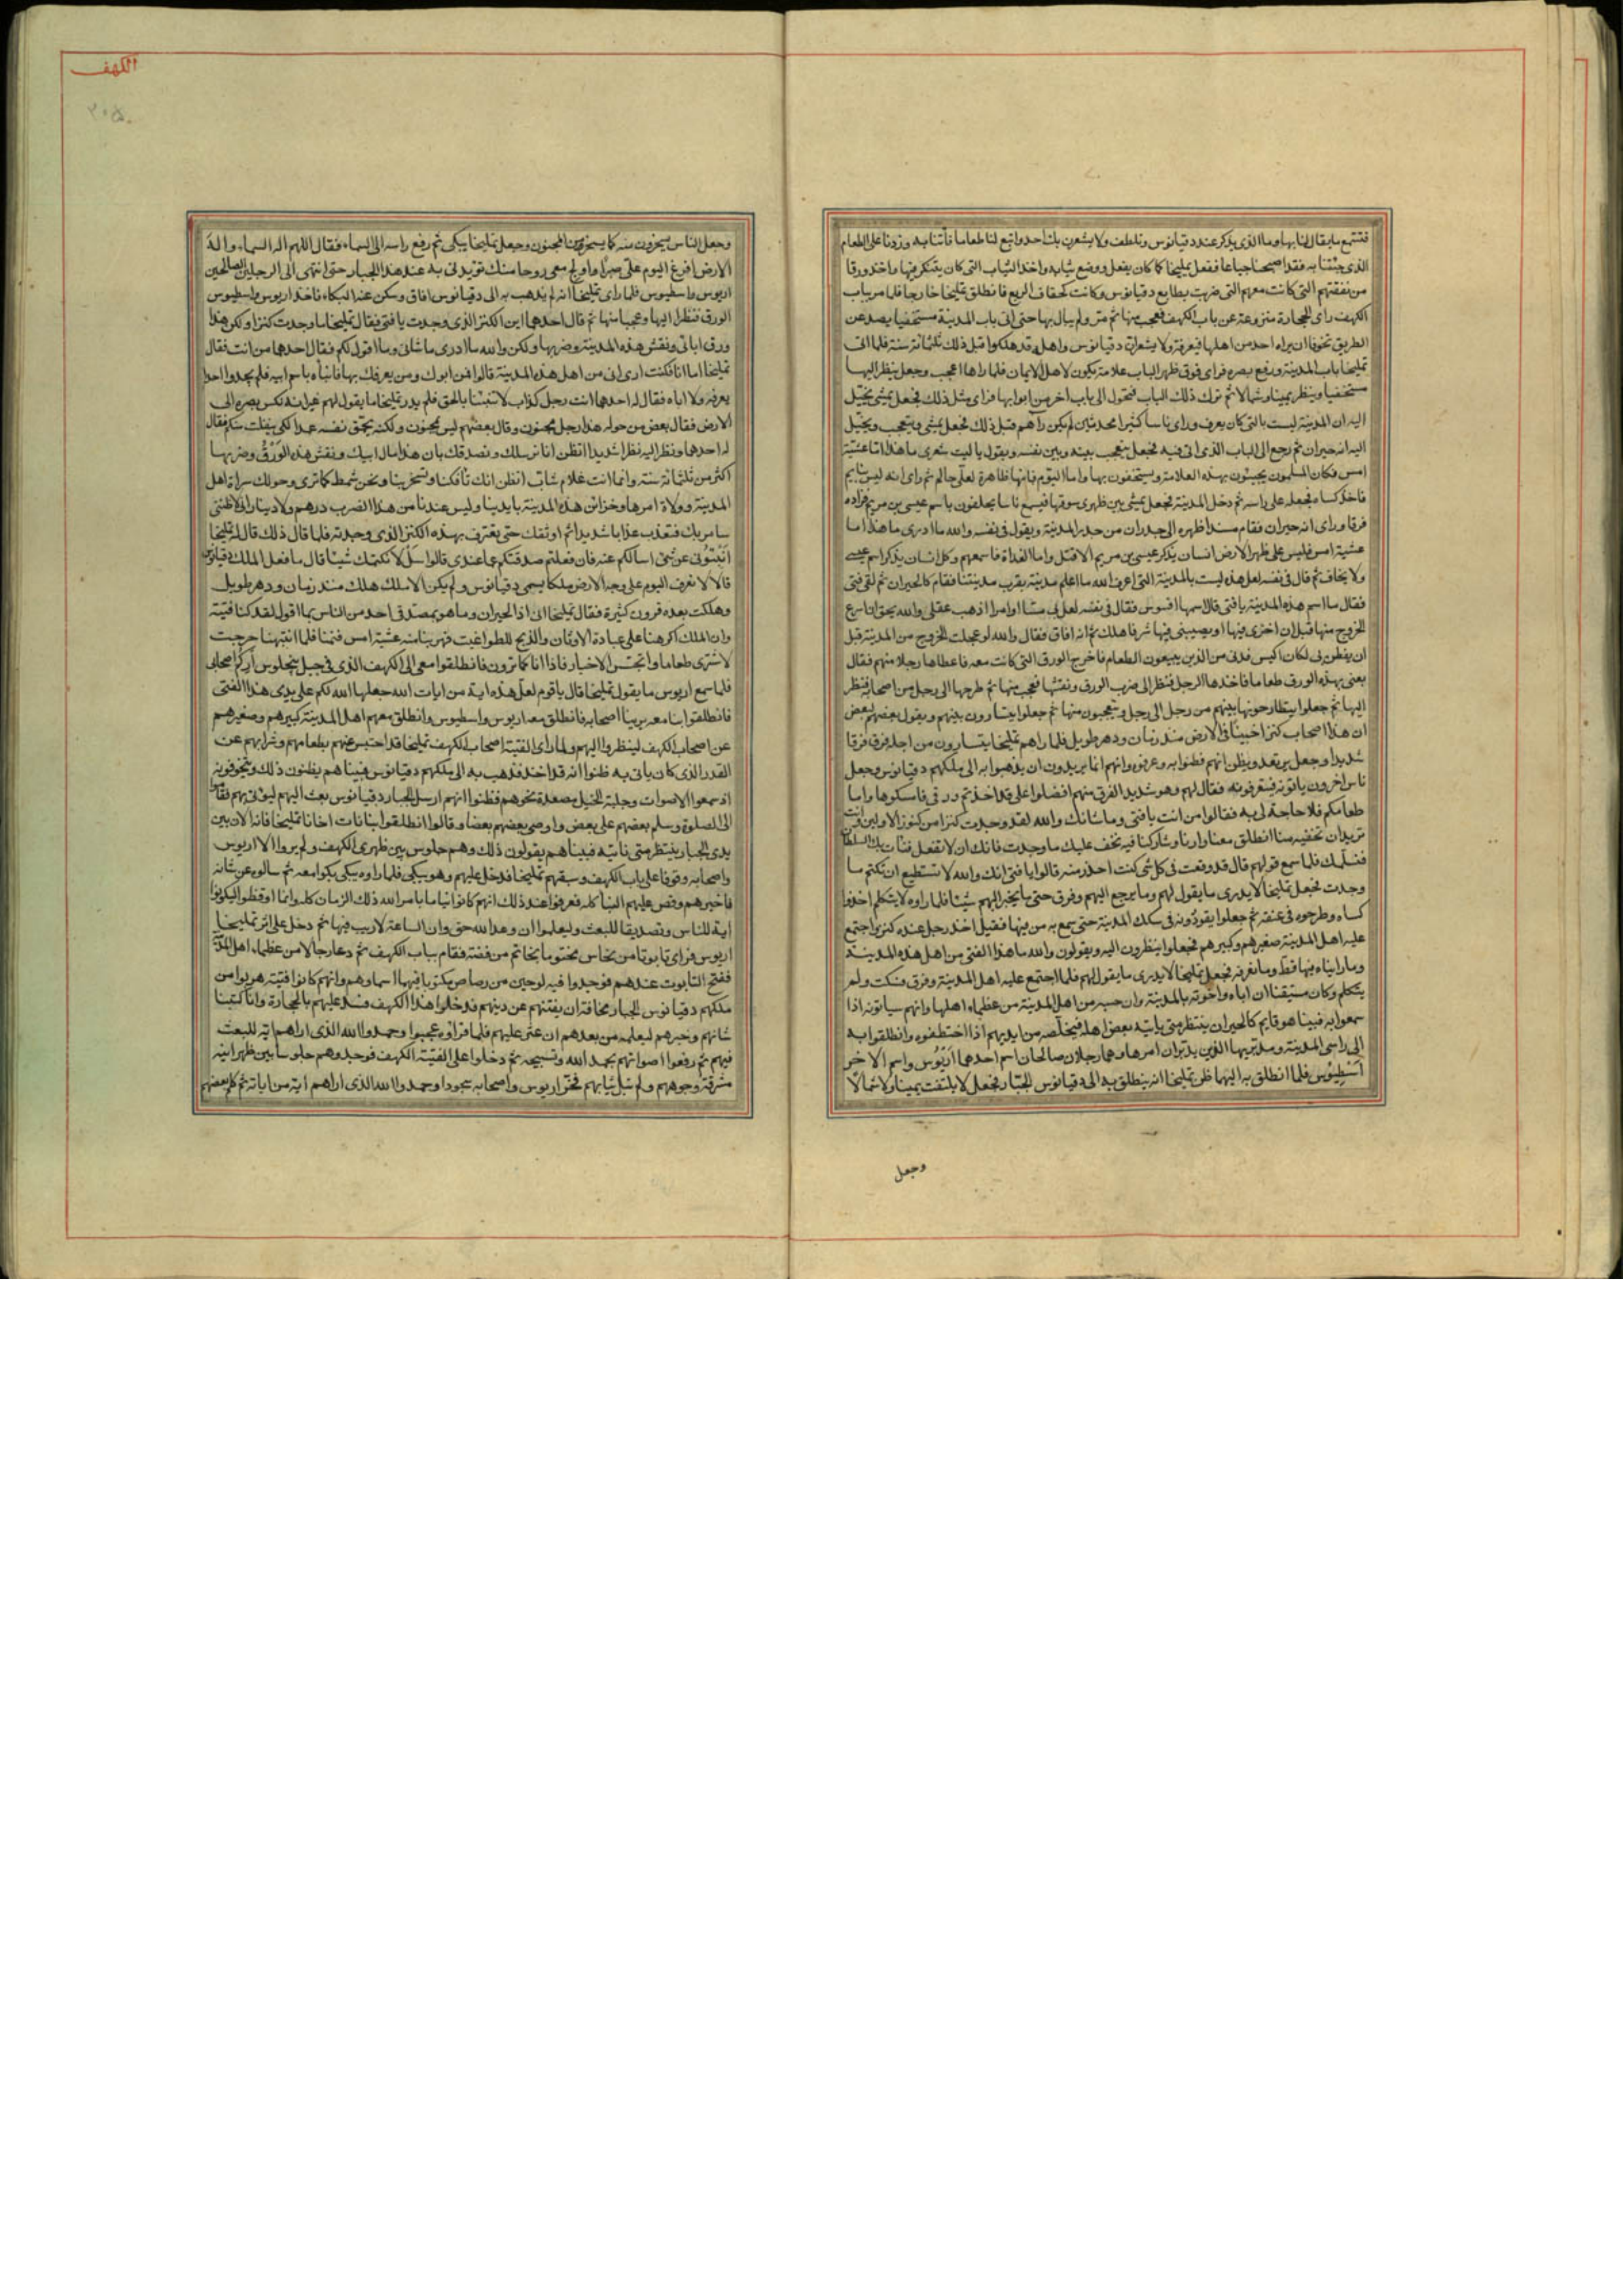 فتتبع ما يقال لنا بها وما الذى يذكر عند دقيانوس وتلطف ولا يشعرن بك احد وابتع لنا طعاما فأتنا به وزدنا على الطعام
الذى جئتنا به فقد اصبحنا جياعا ففعل تمليخا كما كان يفعل ووضع ثيابه واخذ الثياب التى كان يتنكر فيها واخذ ورقا
من نفقتهم التى كانت معهم التى ضربت بطابع دقيانوس وكانت كخفاف الربع فانطلق تمليخا خارجا فلما مر بباب
الكهف راى الحجارة منزوعة عن باب الكهف فعجب منها ثم مر ولم يبال بها حتى اتى باب المدينة مستخفيا يصد عن
الطريق تخوفا ان يراه احد من اهلها فيعرفه ولا يشعر ان دقيانوس واهله قد هلكوا قبل ذلك بثلثمائة سنة فلما اتى
تمليخا باب المدينة ورفع بصره فراى فوق ظهر الباب علامة تكون لاهل الايمان فلما راها عجب وجعل ينظر اليها
مستخفيا وينظر يمينا وشمالا ثم ترك ذلك الباب فتحول الى باب اخر من ابوابها فراى مثل ذلك فجعل يمشى يخيل
اليه ان المدينة ليست بالتى كان يعرف وراى ناسا كثيرا محدثين لم يكن رآهم قبل ذلك فجعل يمشى ويتعجب ويخيل
اليه انه حيران ثم رجع الى الباب الذى اتى فيه فجعل يتعجب بينه وبين نفسه ويقول يا ليت شعرى ما هذا اما عشية
امس فكان المسلمون يخبئون هذه العلامة ويستخفون بها واما اليوم فانها ظاهرة لعلى حالم ثم راى انه ليس بنايم
فاخذ كساه فجعل على راسه ثم دخل المدينة فجعل يمشى بين ظهرى سوقها فيسمع ناسا يحلفون باسم عيسى بن مريم فزاده
فرقا وراى انه حيران فقام مسندا ظهره الى جدار من جدر المدينة ويقول فى نفسه والله ما ادرى ما هذا اما
عشية امس فليس على ظهر الارض انسان يذكر عيسى بن مريم الا قتل واما الغداة فاسمعهم وكل انسان يذكر اسم عيسى
ولا يخاف ثم قال فى نفسه لعل هذه ليست بالمدينة التى اعرف والله ما اعلم مدينة بقرب مدينتنا فقام كالحيران ثم لقى فتى
فقال ما اسم هذه المدينة يا فتى قال اسمها افسوس فقال فى نفسه لعل بى مسا او امرا اذهب عقلى والله يحق ان اسرع
الخروج منها قبل ان اخزى فيها او يصيبنى فيها شر فاهلك ثم انه افاق فقال والله لو عجلت الخروج من المدينة قبل
ان يفطن بى لكان اكيس فدنى من الذين يبيعون الطعام فاخرج الورق التى كانت معه فاعطاها رجلا منهم فقال
بعنى بهذه الورق طعاما فاخذها الرجل فنظر الى ضرب الورق ونقشها فعجب منها ثم طرحها الى رجل من اصحابه فنظر
اليها ثم جعلوا يتطارحونها بينهم من رجل الى رجل ويتعجبون منها ثم جعلوا يتشارون بينهم ويقول بعضهم لبعض
ان هذا اصحاب كنزا خبيئا فى الارض منذ زمان ودهر طويل فلما راهم تمليخا يتسارون من اجله فرق فرقا
شديدا وجعل يرتعد ويظن انهم فطنوا به وعرفوه وانهم انما يريدون ان يذهبوا به الى ملكهم دقيانوس وجعل
ناس اخرون ياتونه فيتعرفونه فقال لهم وهو شديد الفرق منهم افضلوا على قد اخذتم ورقى فامسكوها واما
طعامكم فلا حاجة لى به فقالوا من انت يا فتى وما شانك والله لقد وجدت كنزا من كنوز الاولين وانت
تريد ان تخفيه منا انطلق معنا وارنا وشاركنا فيه نخف عليك ما وجدت فانك ان لا تفعل نات بك السلطان
فنسلمك فلما سمع قولهم قال قد وقعت فى كل شى كنت احذر منه قالوا يا فتى انك والله لا تستطيع ان تكتم ما
وجدت فجعل تمليخا لا يدرى ما يقول لهم وما يرجع اليهم وفرق حتى ما يخبر اليهم شيئا فلما راوه لا يتكلم اخذوا
كساه وطرحوه فى عنقه ثم جعلوا يقودونه فى سكك المدينة حتى سمع به من فيها فقيل اخذ رجل عنده كنز واجتمع
عليه اهل المدينة صغيرهم وكبيرهم فجعلوا ينظرون اليه ويقولون والله ما هذا الفتى من اهل هذه المدينة
وما رايناه فيها قط وما نعرفه فجعل تمليخا لا يدرى ما يقول لهم فلما اجتمع عليه اهل المدينة وفرق فسكت ولم
يتكلم وكان مستيقنا ان اباه واخوته بالمدينة وان حسبه من اهل المدينة من عظماء اهلها وانهم سياتونه اذا
سمعوا به فبينا هو قايم كالحيران ينتظر متى ياتيه بعض اهله فيخلصه من ايديهم اذا اختطفوه وانطلقوا به
الى راسى المدينة ومدبريها الذين يدبران امرها وهما رجلان صالحان اسم احدهما اريوس واسم الاخر
اسطيوس فلما انطلق به اليهما ظن تمليخا انه ينطلق به الى دقيانوس الجبار فجعل لا يلتفت يمينا ولا شمالا
وجعل
الكهف
وجعل الناس يسخرون منه كما يسخر من المجنون وجعل تمليخا يبكى ثم رفع راسه الى السماء فقال اللهم اله السماء واله
الارض افرغ اليوم على صبرا واولج معى روحا منك تؤيدنى به عند هذا الجبار حتى انتهى الى الرجلين الصالحين
اريوس واسطيوس فلما راى تمليخا انه لم يذهب به الى دقيانوس افاق وسكن عنه البكاء فاخذ اريوس واسطيوس
الورق فنظرا اليها وعجبا منها ثم قال احدهما اين الكنز الذى وجدت يا فتى فقال تمليخا ما وجدت كنزا ولكن هذا
ورق اباى ونقش هذه المدينة وضربها ولكن والله ما ادرى ما شانى وما اقول لكم فقال احدهما من انت فقال
تمليخا اما انا فكنت ارى انى من اهل هذه المدينة قالوا فمن ابوك ومن يعرفك بها فانباه باسم ابيه فلم يجدوا احدا
يعرفه ولا اباه فقال له احدهما انت رجل كذاب لا تنبئنا بالحق فلم يدر تمليخا ما يقول لهم غير انه نكس بصره الى
الارض فقال بعض من حوله هذا رجل مجنون وقال بعضهم ليس مجنون ولكنه يحمق نفسه عمدا لكى ينفلت منكم فقال
له احدهما ونظر اليه نظرا شديدا اتظن انا نرسلك ونصدقك بان هذا مال ابيك ونقش هذه الورق وضربها
اكثر من ثلثمائة سنة وانما انت غلام شاب اتظن انك تافكنا وتسخر بنا ونحن شمط كما ترى وحولك سراة اهل
المدينة وولاة امرها وخزائن هذه المدينة بايدينا وليس عندنا من هذا الضرب درهم ولا دينار انى لاظننى
سامر بك فتعذب عذابا شديدا ثم اوثقك حتى تعترف بهذه الكنز الذى وجدته فلما قال ذلك قال له تمليخا
انبئونى عن شئ اسالكم عنه فان فعلتم صدقتكم عما عندى قالوا سل لا نكتمك شيئا قال ما فعل الملك دقيانوس
قالا لا نعرف اليوم على وجه الارض ملكا يسمى دقيانوس ولم يكن الا ملك هلك منذ زمان ودهر طويل
وهلكت بعده قرون كثيرة فقال تمليخا انى اذا لحيران وما هو بمصدقى احد من الناس بما اقول لقد كنا فتية
وان الملك اكرهنا على عبادة الاوثان والذبح للطواغيت فهربنا منه عشية امس فنمنا فلما انتبهنا خرجت
لاشترى طعاما واتجسس الاخبار فاذا انا كما ترون فانطلقوا معى الى الكهف الذى فى جبل ينجلوس اركم اصحابى
فلما سمع اريوس ما يقول تمليخا قال يا قوم لعل هذه اية من ايات الله جعلها الله لكم على يدى هذا الفتى
فانطلقوا بنا معه يرينا اصحابه فانطلق معه اريوس واسطيوس وانطلق معهم اهل المدينة كبيرهم وصغيرهم
عن اصحاب الكهف لينظروا اليهم ولما راى الفتية اصحاب الكهف تمليخا قد احتبس عنهم بطعامهم وشرابهم عن
القدر الذى كان ياتى به ظنوا انه قد اخذ فذهب به الى ملكهم دقيانوس فبينا هم يظنون ذلك ويتخوفونه
اذ سمعوا الاصوات وجلبة الخيل مصعدة نحوهم فظنوا انهم ارسل الجبار دقيانوس بعث اليهم ليؤتى بهم فقاموا
الى الصلوة وسلم بعضهم على بعض واوصى بعضهم بعضا وقالوا انطلقوا بنا نات اخانا تمليخا فانه الان بين
يدى الجبار ينتظر متى ناتيه فبينا هم يقولون ذلك وهم جلوس بين ظهرى الكهف ولم يروا الا اريوس
واصحابه وقوفا على باب الكهف وسبقهم تمليخا فدخل عليهم وهو يبكى فلما راوه يبكى بكوا معه ثم سالوه عن شانه
فاخبرهم وقص عليهم النبا كله فعرفوا عند ذلك انهم كانوا نياما بامر الله ذلك الزمان كله وانما اوقظوا ليكونوا
اية للناس وتصديقا للبعث وليعلموا ان وعد الله حق وان الساعة لا ريب فيها ثم دخل على اثر تمليخا
اريوس فراى تابوتا من نحاس مختوما بخاتم من فضة فقام بباب الكهف ثم دعا رجالا من عظماء اهل المدينة
ففتح التابوت عندهم فوجدوا فيه لوحين من رصاص مكتوبا فيهما اسماوهم وانهم كانوا فتية هربوا من
ملكهم دقيانوس الجبار مخافة ان يفتنهم عن دينهم فدخلوا هذا الكهف فسد عليهم بالحجارة وانا كتبنا
شانهم وخبرهم ليعلمه من بعدهم ان عثر عليهم فلما قراوه عجبوا وحمدوا الله الذى اراهم اية للبعث
فيهم ثم رفعوا اصواتهم بحمد الله وتسبيحه ثم دخلوا على الفتية الكهف فوجدوهم جلوسا بين ظهرانيه
مشرقة وجوههم ولم تبل ثيابهم فخر اريوس واصحابه سجودا وحمدوا الله الذى اراهم اية من اياته ثم كلم بعضهم